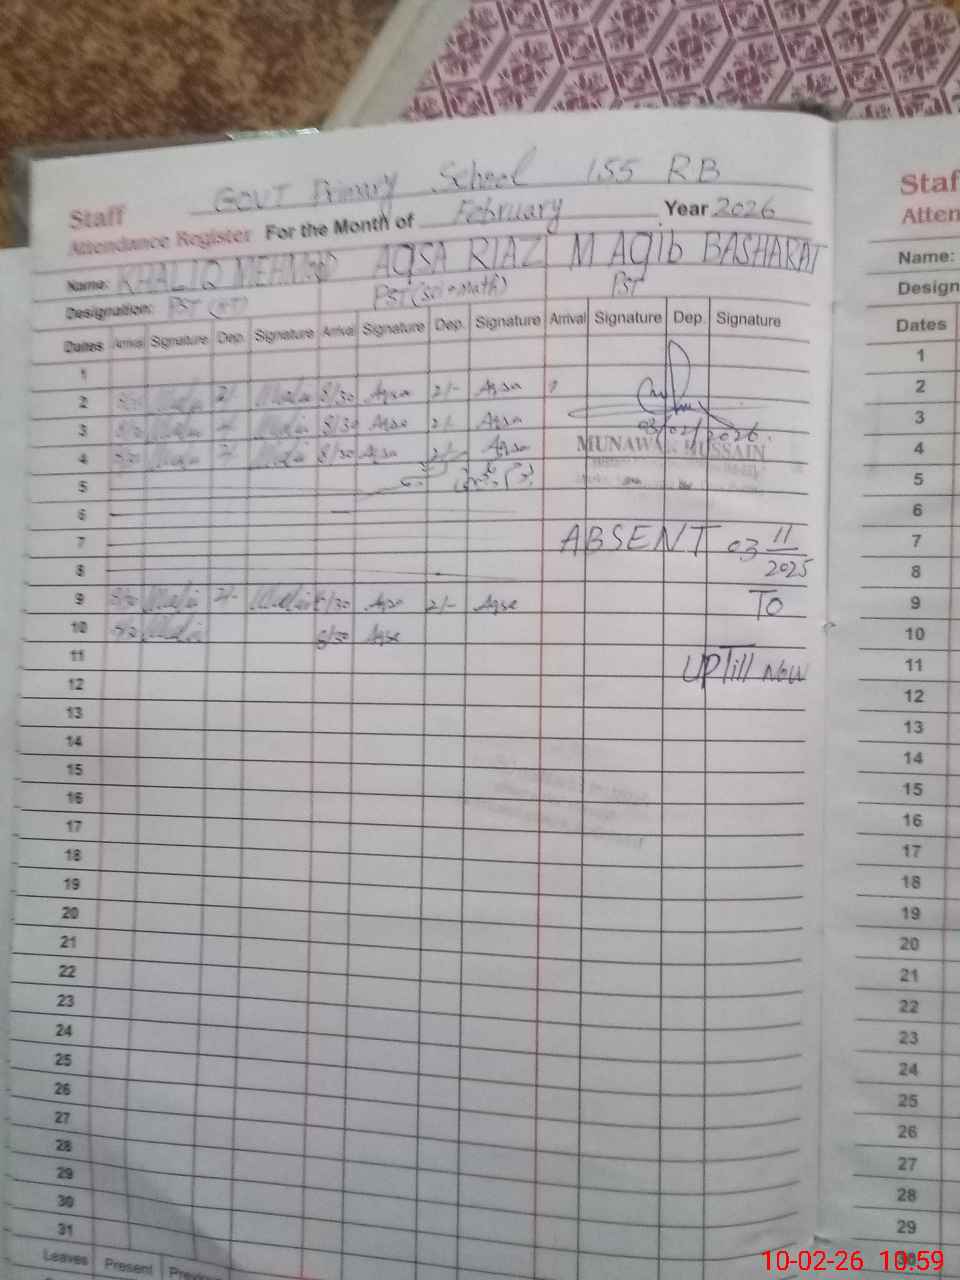 GOVT Primary School 155 RB
Staff
Attendance Register For the Month of February Year 2026
Name: KHALIQ MEHMOOD AQSA RIAZ M AQib BASHARAT
Designation: PST (HT) PST (sci+math) PST
Dates Arrival Signature Dep. Signature Arrival Signature Dep. Signature Arrival Signature Dep. Signature
1
2 8/30 2/- 8/30 Aqsa 2/- Aqsa
3 8/30 8/30 Aqsa 2/- Aqsa
03/02/2026.
4 8/30 2/- 8/30 Aqsa 2/- Aqsa
MUNAWAR HUSSAIN
5
6
7 ABSENT 03 11
8 2025
9 8/30 2/- 8/30 Aqsa 2/- Aqsa TO
10 8/30 8/30 Aqsa
11 UPTill Now
12
13
14
15
16
17
18
19
20
21
22
23
24
25
26
27
28
29
30
31
Leaves Present
Staf
Atten
Name:
Design
Dates
1
2
3
4
5
6
7
8
9
10
11
12
13
14
15
16
17
18
19
20
21
22
23
24
25
26
27
28
29
30
10-02-26 10:59